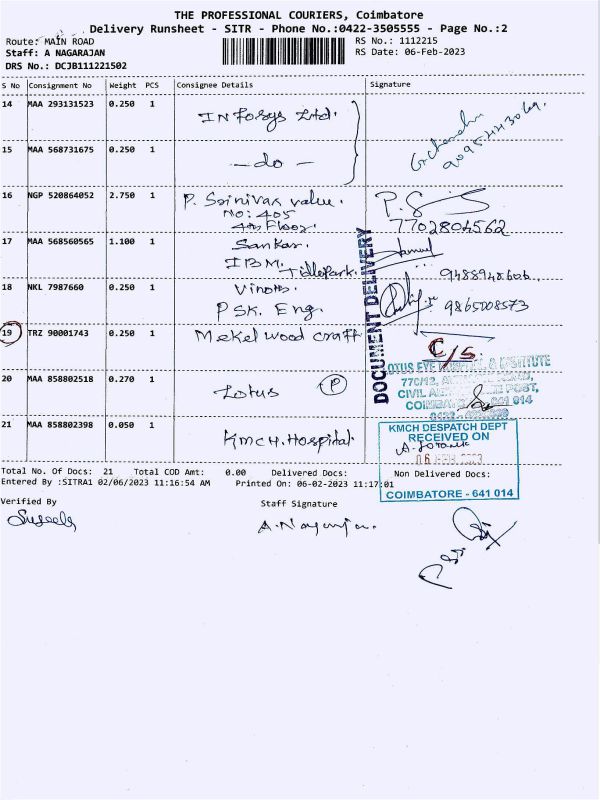 THE PROFESSIONAL COURIERS, Coimbatore
Delivery Runsheet - SITR - Phone No.:0422-3505555 - Page No.:2
Route: MAIN ROAD
Staff: A NAGARAJAN
DRS No.: DCJB111221502
RS No.: 1112215
RS Date: 06-Feb-2023
S No Consignment No Weight PCS Consignee Details Signature
14 MAA 293131523 0.250 1 Infosys Ltd.
15 MAA 568731675 0.250 1 - do -
16 NGP 520864052 2.750 1 P. Srinivas value.
No: 405
4th Floor.
7702804562
17 MAA 568560565 1.100 1 Sankar.
IBM. Tidlepark.
9488948606
18 NKL 7987660 0.250 1 Vinoth.
PSK. Eng.
9865008573
19 TRZ 90001743 0.250 1 Mekelwood craft
C/s.
DOCUMENT DELIVERY
20 MAA 858802518 0.270 1 Lotus P
LOTUS EYE HOSPITAL & INSTITUTE
770/12,
CIVIL POST,
641 014
21 MAA 858802398 0.050 1 KMCH. Hospital.
KMCH DESPATCH DEPT
RECEIVED ON
06 FEB 2023
COIMBATORE - 641 014
Total No. Of Docs: 21 Total COD Amt: 0.00 Delivered Docs: Non Delivered Docs:
Entered By :SITRA1 02/06/2023 11:16:54 AM Printed On: 06-02-2023 11:17:01
Verified By
Staff Signature
Suseela
A. Nagarajan.